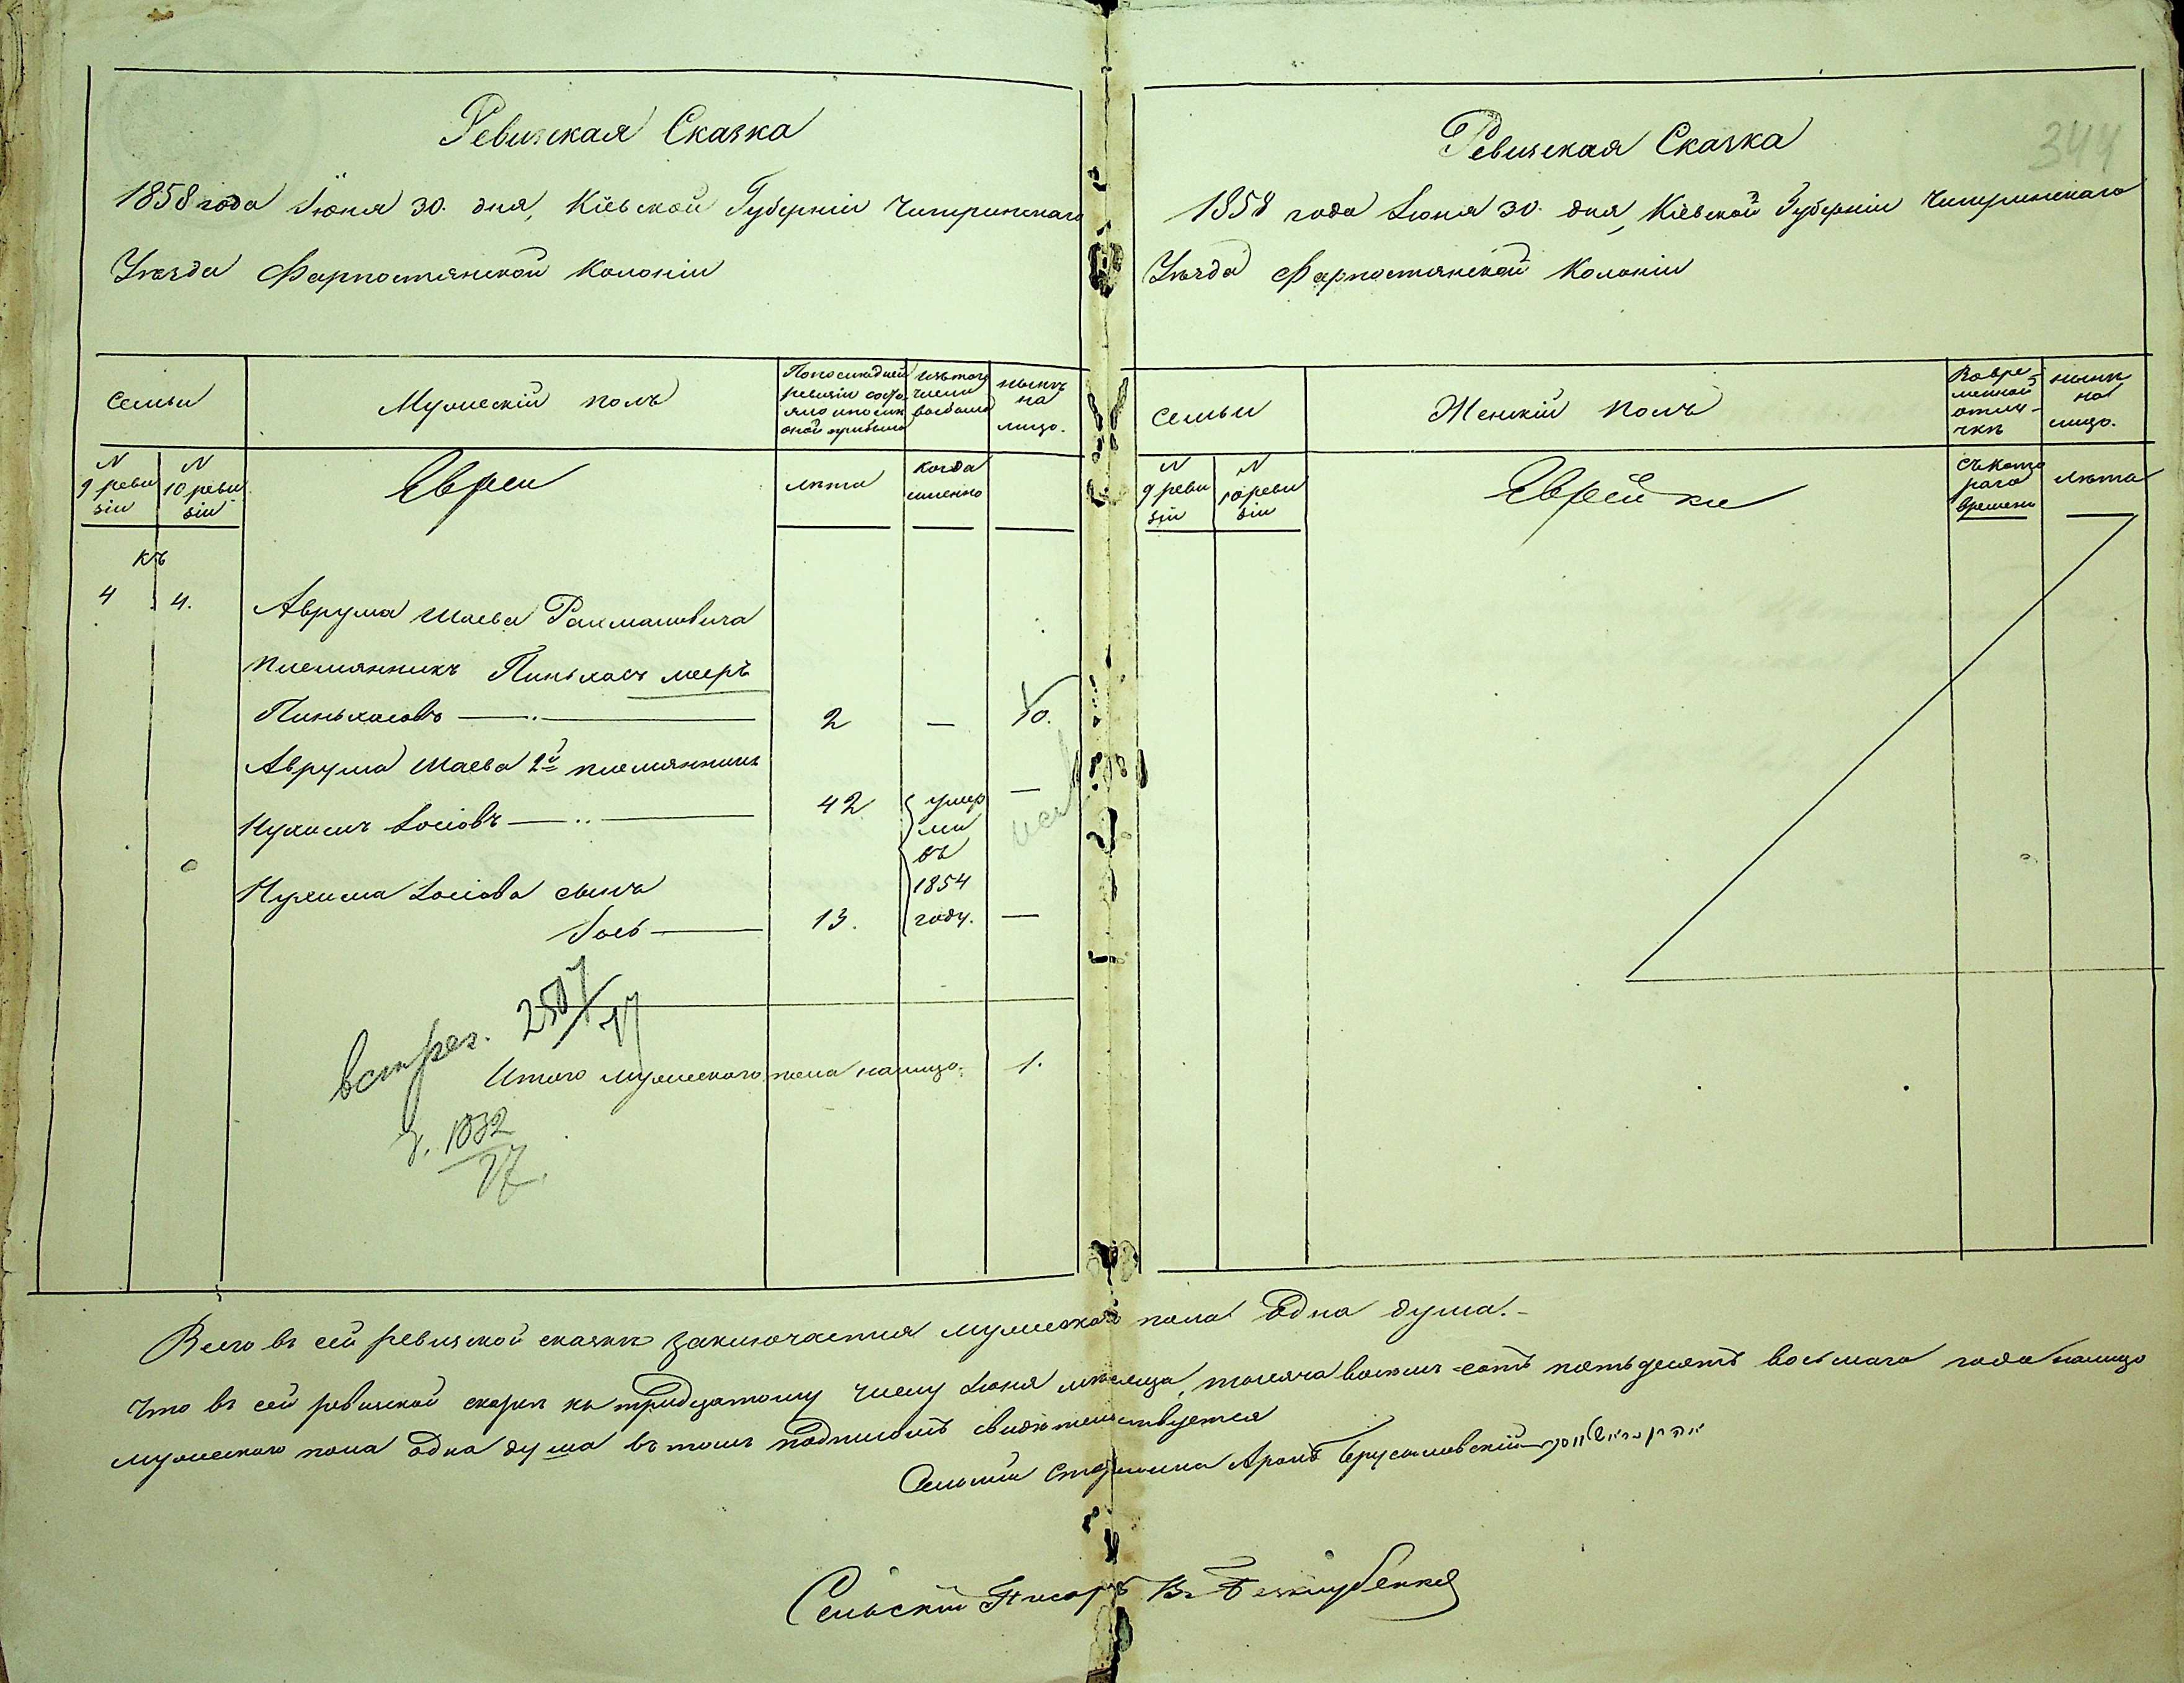 Ревизская Сказка
1858 года Іюня 30. дня, Кіевской Губерніи Чигиринскаго
Уѣзда Фарпостянской Колоніи
Семьи
Мужескій полъ
По последней ревизіи состояло и после оной прибыло
Изъ того числа выбыло
нынѣ на лицо.
N 9 ревизіи
N 10 ревизіи
Евреи
лѣта
когда именно
къ
4 4.
Аврума Шаева Рахмановича
племянникъ Пиньхасъ Мееръ
Пиньхасовъ — 2 — 10.
Аврума Шаева 2й племянникъ
Нухимъ Іосіовъ — 42 умерли въ 1854 году. —
Нухима Іосіова сынъ
Іось — 13. —
встреч. 2507/17
Итого мужескаго пола налицо. 1.
1832
17.
Ревизская Сказка
344
1858 года Іюня 30. дня, Кіевской Губерніи Чигиринскаго
Уѣзда Фарпостянской Колоніи
Семьи
Женскій полъ
Во временной отлучкѣ
нынѣ на лицо.
N 9 ревизіи
N 10 ревизіи
Еврейки
съ котораго времени
лѣта
Всего въ сей ревизской сказкѣ заключается мужескаго пола одна душа.
Что въ сей ревизской скаскѣ къ тридцатому числу Іюня мѣсяца, тысяча восемь сотъ пятьдесятъ восьмаго года налицо
мужескаго пола одна душа въ томъ подписомъ свидѣтельствуется
Сельскій Старшина Аронъ Ерусалимскій
Сельскій Писарь В. Безклубенко